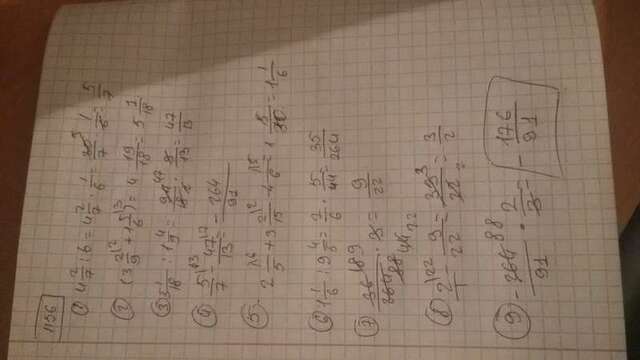 1156
1) 4 2/7 : 6 = 4 2/7 · 1/6 = 30/7 · 1/6 = 5/7
2 (3 2/9 + 1 5/6) = 4 19/18 = 5 1/18
3 5 1/18 : 1 4/9 = 91/18 · 9/13 = 47/13
4 5/7 - 47/13 = -264/91
5 2 1/5 + 3 2/15 - 4 1/6 = 1 5/30 = 1 1/6
6 1 1/6 : 9 4/5 = 7/6 · 5/44 = 35/264
7 36/264 · 3 = 9/22
8 2/1 - 9/22 = 39/22 = 3/2
9 -264/91 · 2/3 = -176/91